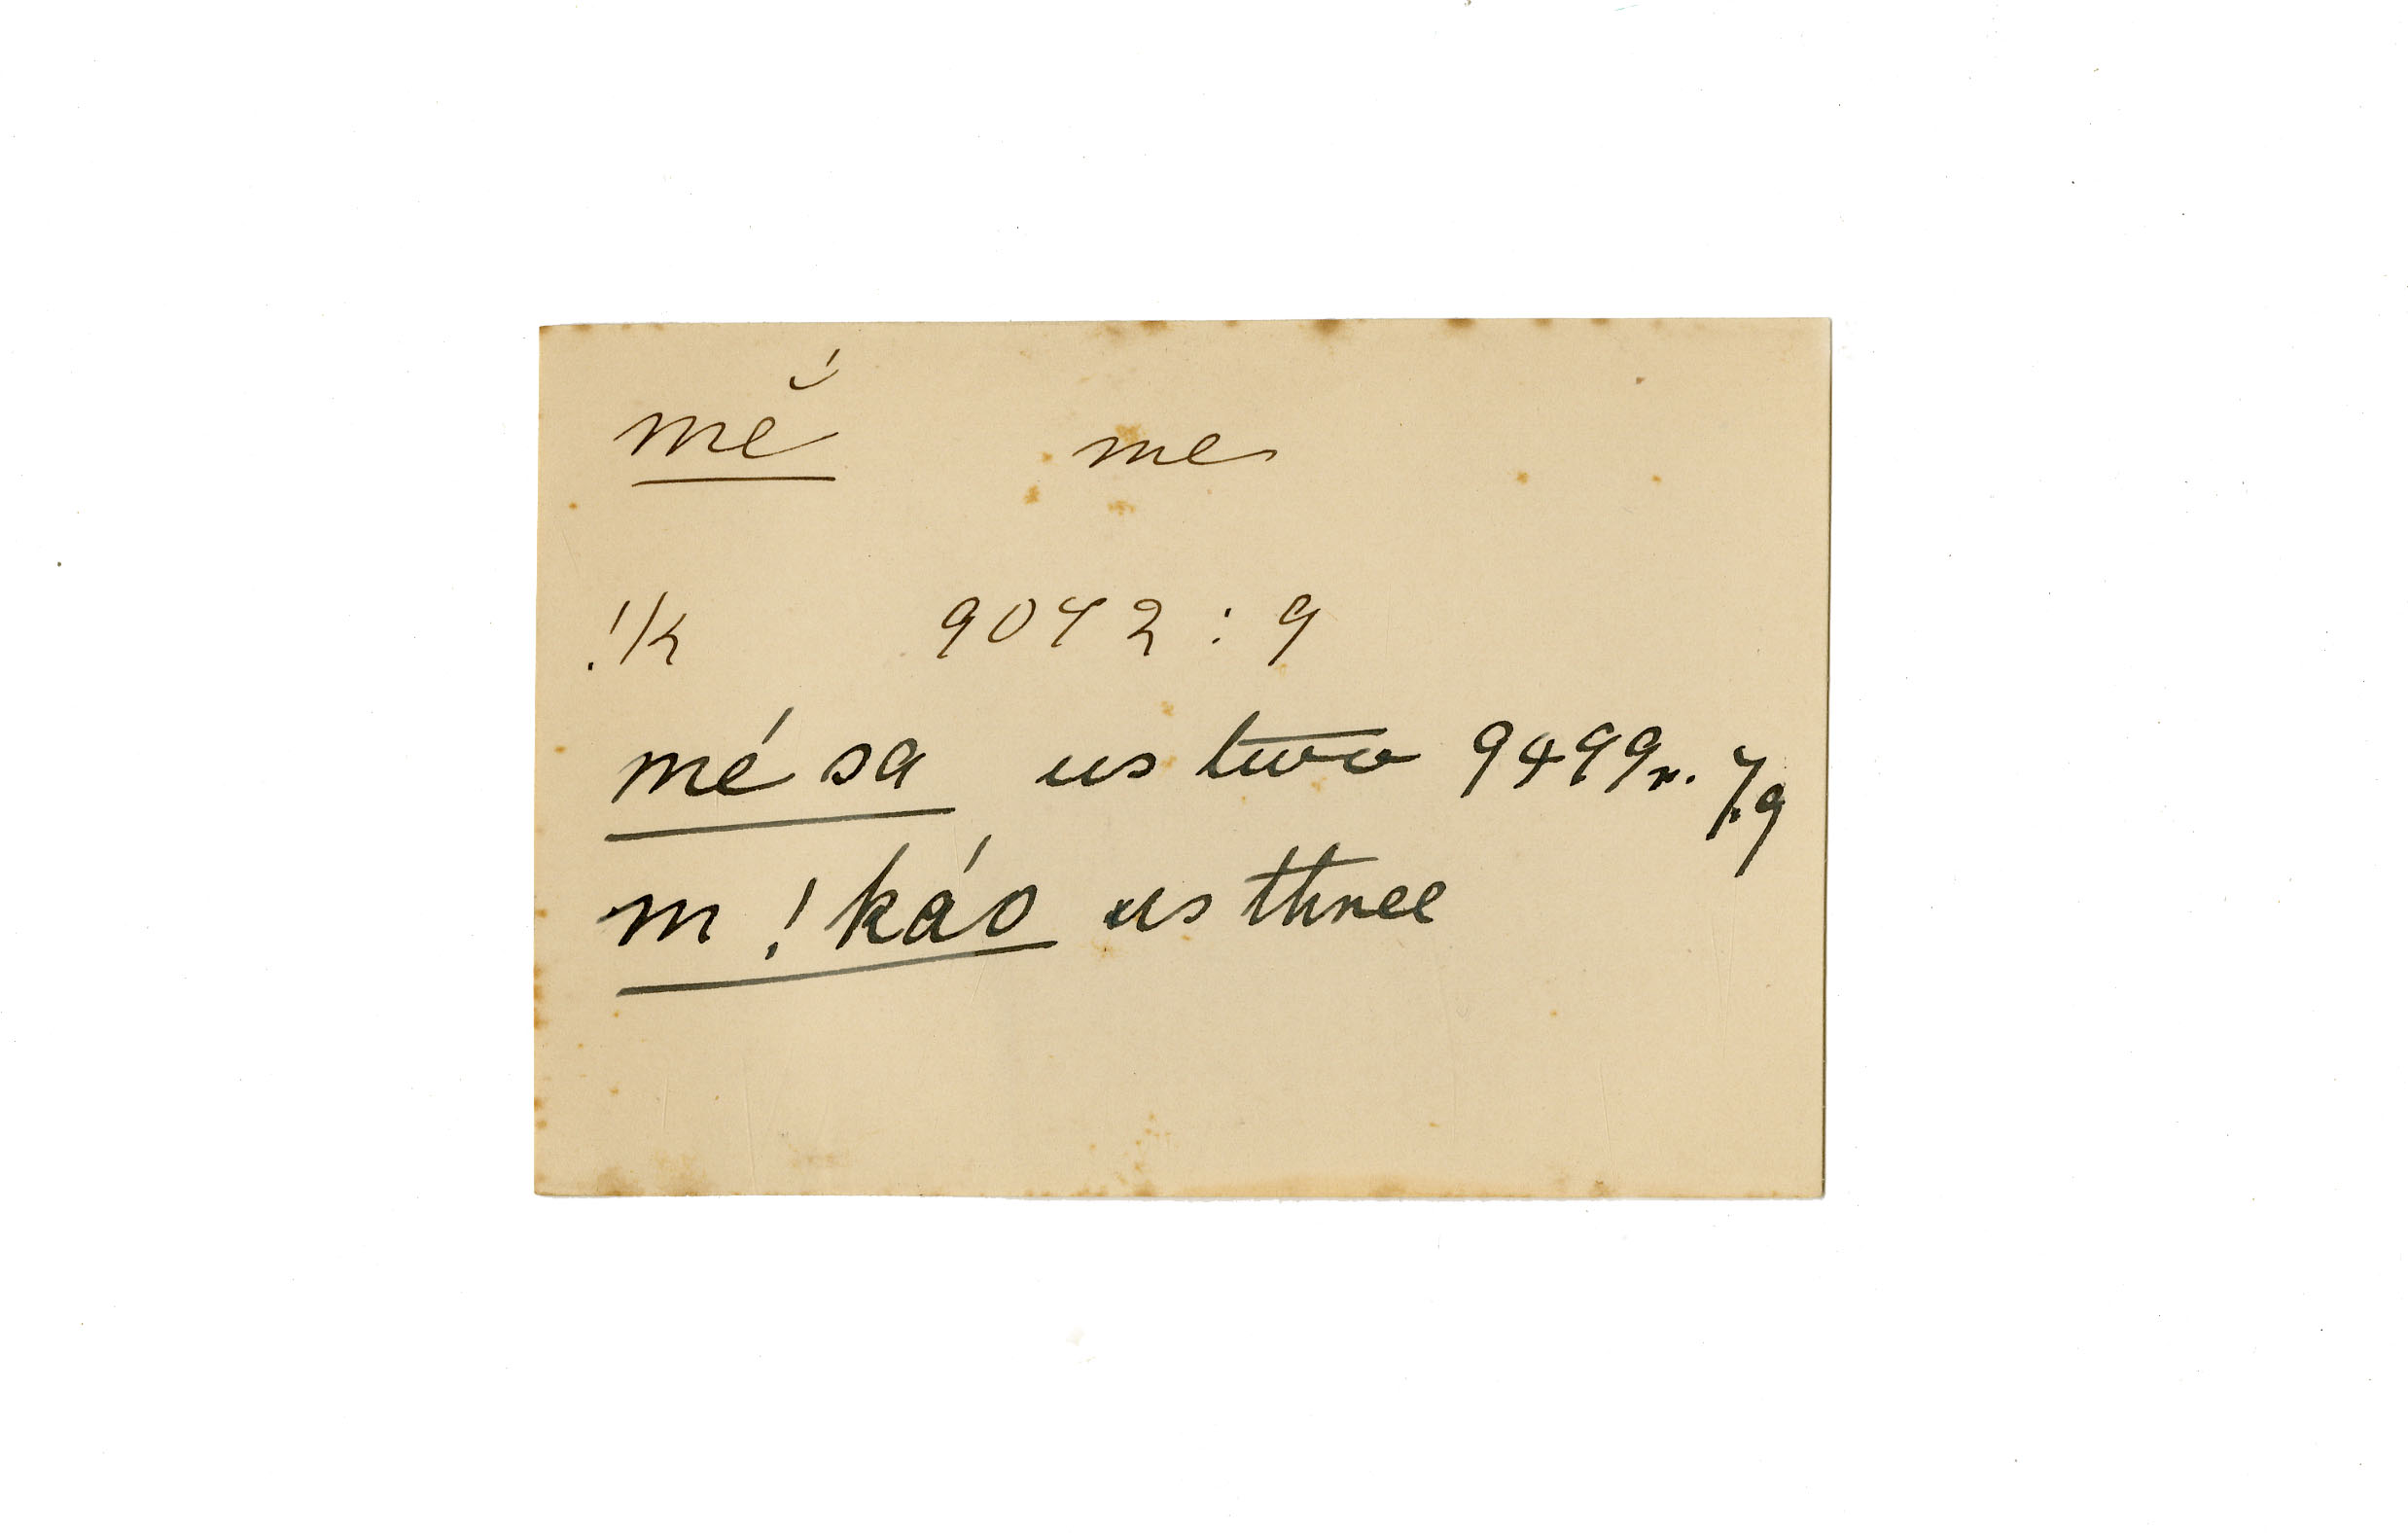 mĕ́ me
!k 9042 : 9
mé sa us two 9499r. 7.9
m !káo us three